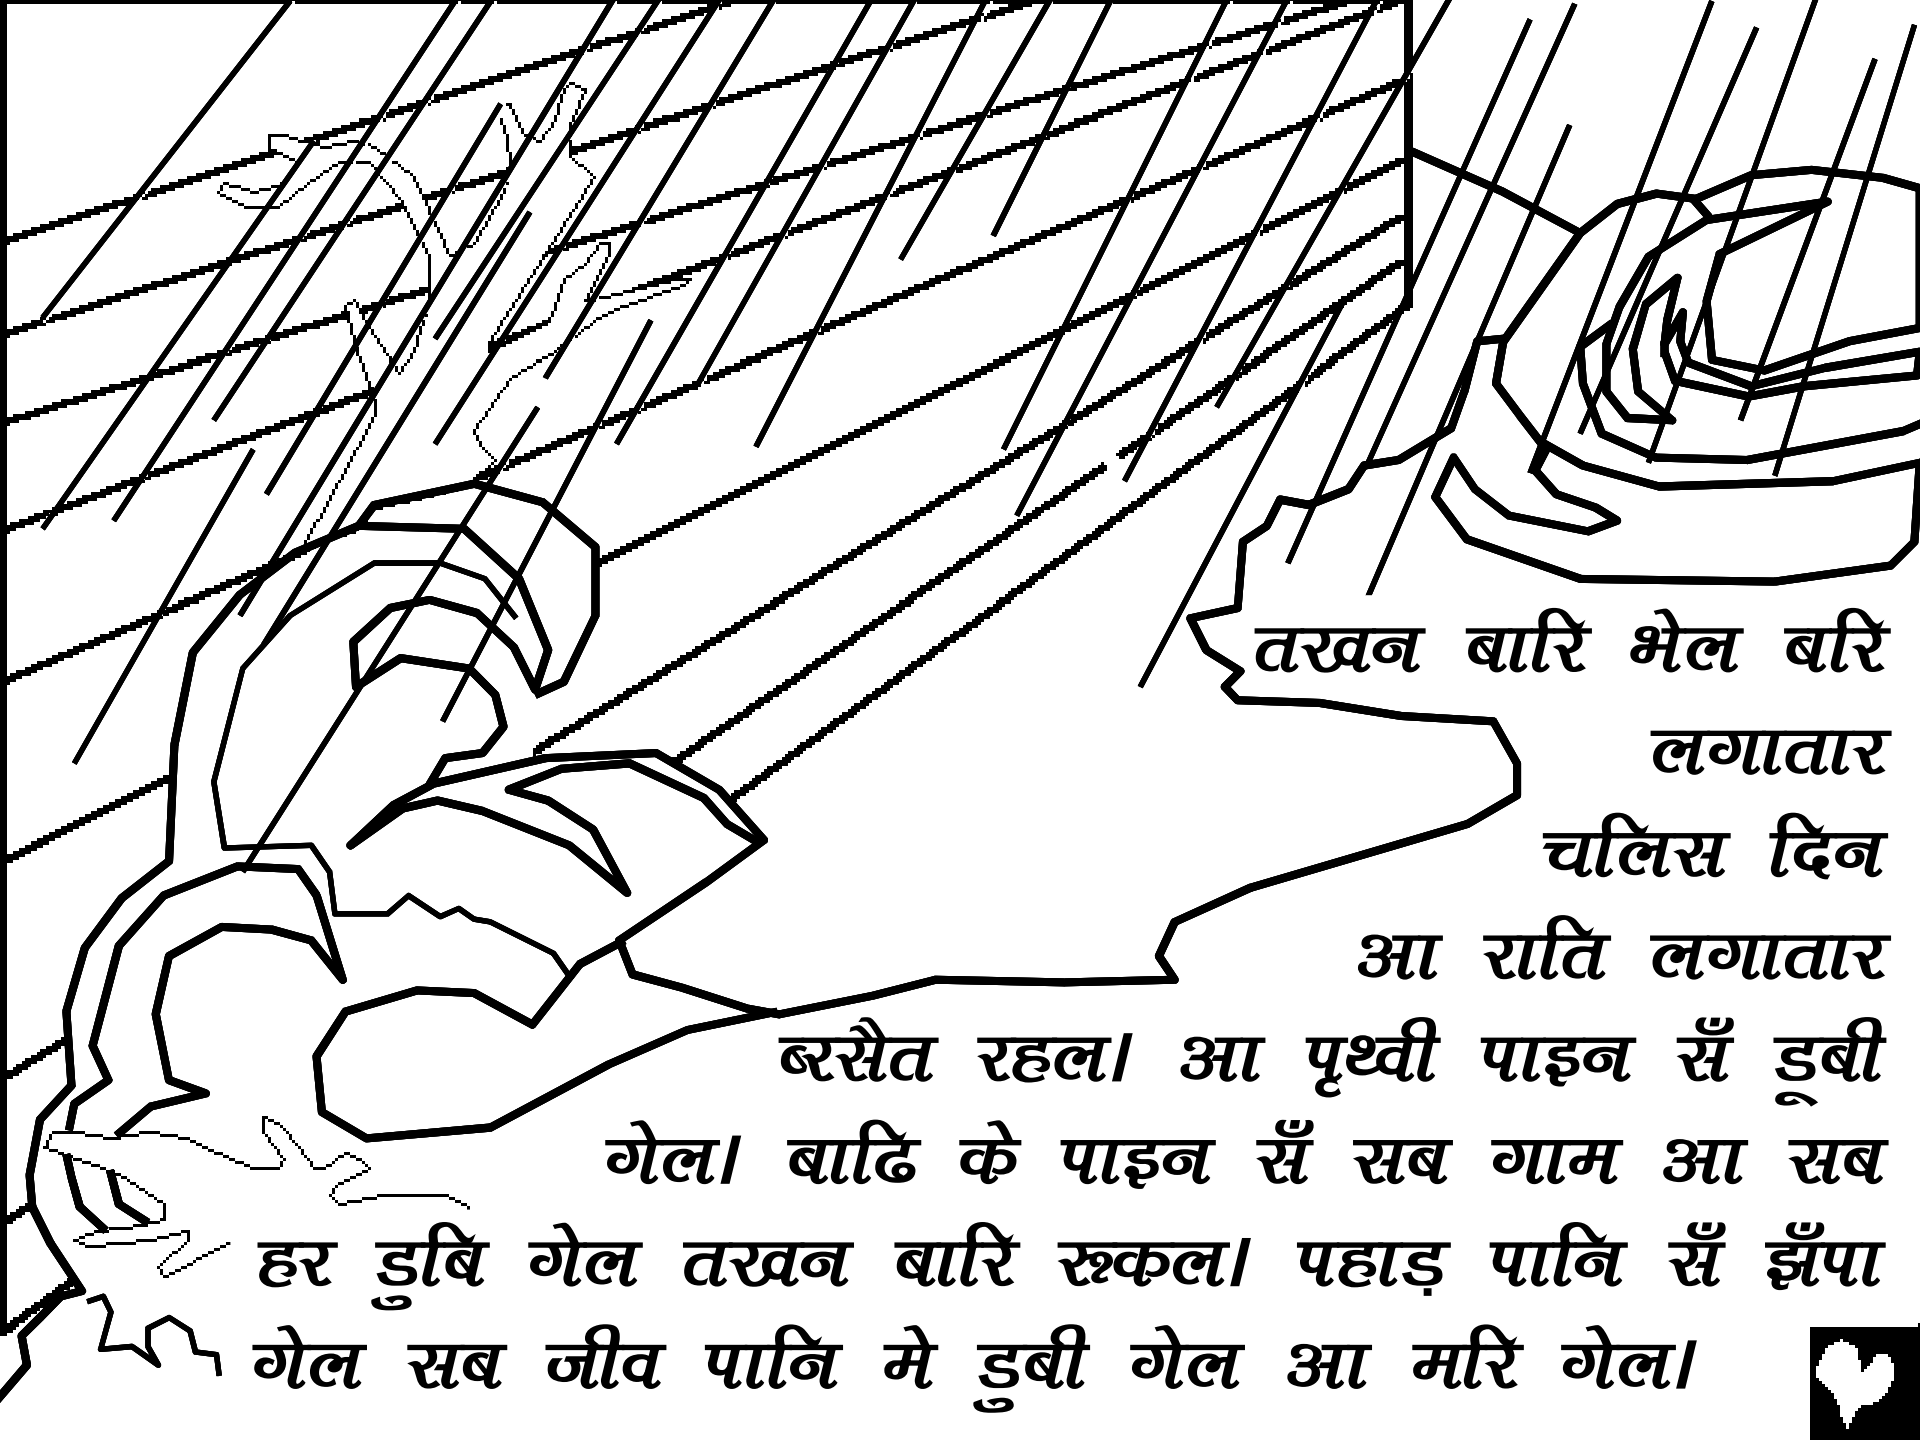 तखन बारि भेल बरि
लगातार
चलिस दिन
आ राति लगातार
ब्रसैत रहल। आ पृथ्वी पाइन सँ डूबी
गेल। बाढि के पाइन सँ सब गाम आ सब
हर डुबि गेल तखन बारि रुकल। पहाड़ पानि सँ झँपा
गेल सब जीव पानि मे डुबी गेल आ मरि गेल।